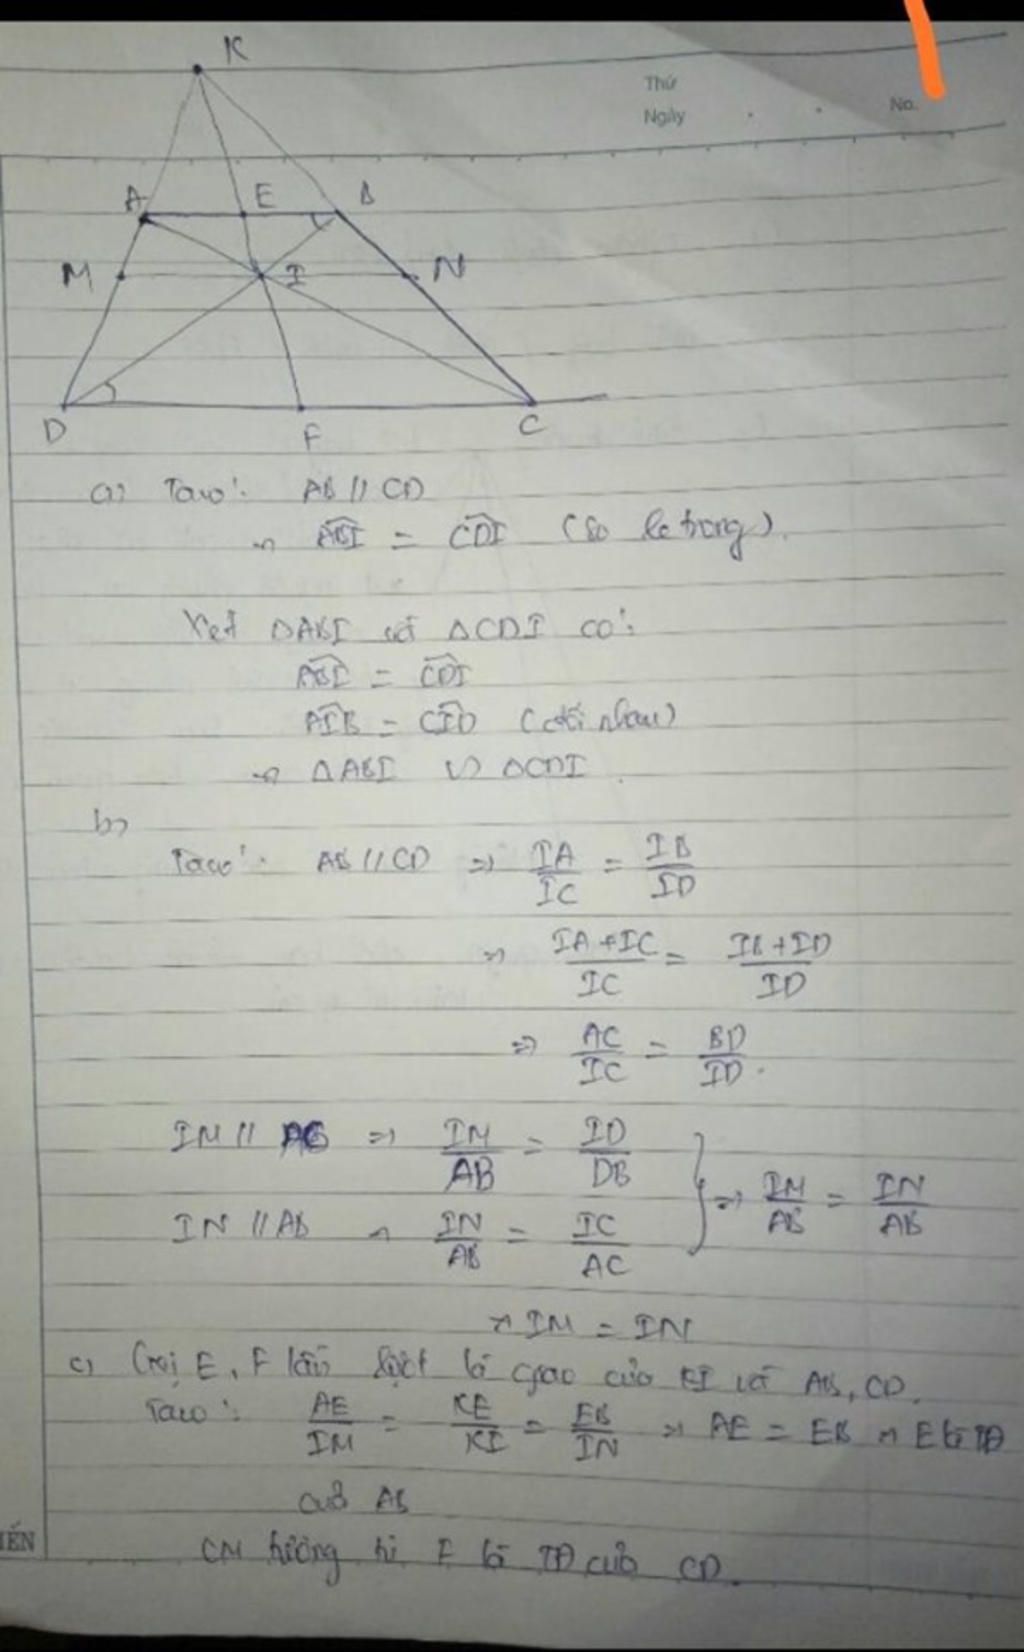 K
Thứ
Ngày
No.
A E B
M I N
D F C
a) Ta có: AB // CD
=> ABI = CDI (So le trong).
Xét ΔABI và ΔCDI có:
ABI = CDI
AIB = CID (đối nhau)
=> ΔABI ∽ ΔCDI.
b)
Ta có: AB // CD => IA/IC = IB/ID
=> IA+IC/IC = IB+ID/ID
=> AC/IC = BD/ID.
IM // AB => IM/AB = ID/DB
IN // AB => IN/AB = IC/AC
} => IM/AB = IN/AB
=> IM = IN
c) Gọi E, F lần lượt là giao của KI và AB, CD.
Ta có: AE/IM = KE/KI = EB/IN => AE = EB => E là TĐ
của AB
CM tương tự F là TĐ của CD.
IẾN